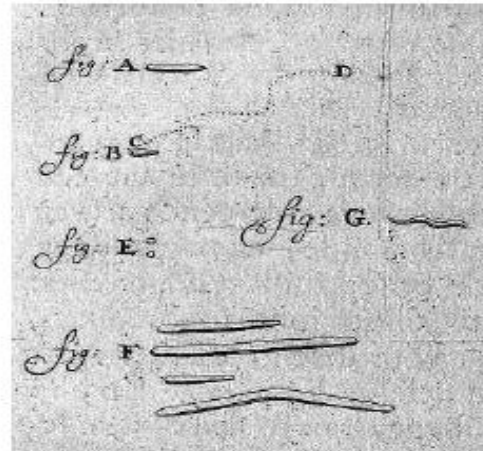 fig: A.
D
C.
fig: B
fig: G.
fig: E
fig: F